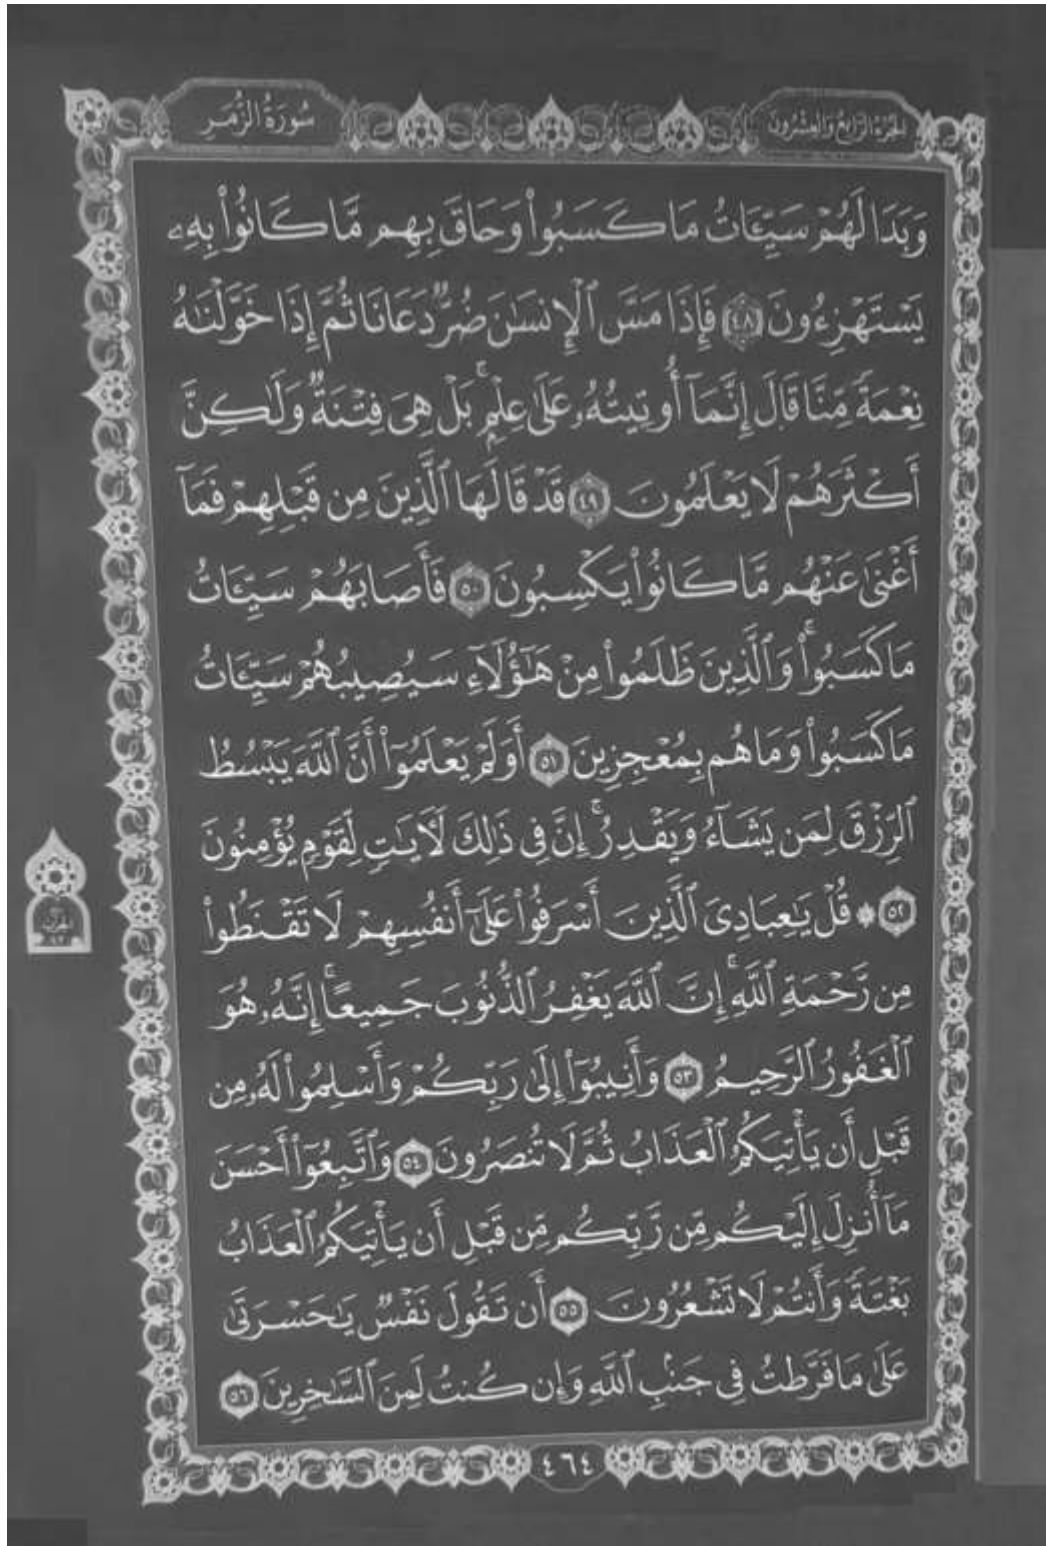 الجزء الرابع والعشرون
سُورَةُ الزُّمَر
وَبَدَا لَهُمْ سَيِّـَٔاتُ مَا كَسَبُوا۟ وَحَاقَ بِهِم مَّا كَانُوا۟ بِهِۦ
يَسْتَهْزِءُونَ ٤٨ فَإِذَا مَسَّ ٱلْإِنسَـٰنَ ضُرٌّ دَعَانَا ثُمَّ إِذَا خَوَّلْنَـٰهُ
نِعْمَةً مِّنَّا قَالَ إِنَّمَآ أُوتِيتُهُۥ عَلَىٰ عِلْمٍۭ ۚ بَلْ هِىَ فِتْنَةٌ وَلَـٰكِنَّ
أَكْثَرَهُمْ لَا يَعْلَمُونَ ٤٩ قَدْ قَالَهَا ٱلَّذِينَ مِن قَبْلِهِمْ فَمَآ
أَغْنَىٰ عَنْهُم مَّا كَانُوا۟ يَكْسِبُونَ ٥٠ فَأَصَابَهُمْ سَيِّـَٔاتُ
مَا كَسَبُوا۟ ۚ وَٱلَّذِينَ ظَلَمُوا۟ مِنْ هَـٰٓؤُلَآءِ سَيُصِيبُهُمْ سَيِّـَٔاتُ
مَا كَسَبُوا۟ وَمَا هُم بِمُعْجِزِينَ ٥١ أَوَلَمْ يَعْلَمُوٓا۟ أَنَّ ٱللَّهَ يَبْسُطُ
ٱلرِّزْقَ لِمَن يَشَآءُ وَيَقْدِرُ ۚ إِنَّ فِى ذَٰلِكَ لَـَٔايَـٰتٍ لِّقَوْمٍ يُؤْمِنُونَ
٥٢ ۞ قُلْ يَـٰعِبَادِىَ ٱلَّذِينَ أَسْرَفُوا۟ عَلَىٰٓ أَنفُسِهِمْ لَا تَقْنَطُوا۟
مِن رَّحْمَةِ ٱللَّهِ ۚ إِنَّ ٱللَّهَ يَغْفِرُ ٱلذُّنُوبَ جَمِيعًا ۚ إِنَّهُۥ هُوَ
ٱلْغَفُورُ ٱلرَّحِيمُ ٥٣ وَأَنِيبُوٓا۟ إِلَىٰ رَبِّكُمْ وَأَسْلِمُوا۟ لَهُۥ مِن
قَبْلِ أَن يَأْتِيَكُمُ ٱلْعَذَابُ ثُمَّ لَا تُنصَرُونَ ٥٤ وَٱتَّبِعُوٓا۟ أَحْسَنَ
مَآ أُنزِلَ إِلَيْكُم مِّن رَّبِّكُم مِّن قَبْلِ أَن يَأْتِيَكُمُ ٱلْعَذَابُ
بَغْتَةً وَأَنتُمْ لَا تَشْعُرُونَ ٥٥ أَن تَقُولَ نَفْسٌ يَـٰحَسْرَتَىٰ
عَلَىٰ مَا فَرَّطتُ فِى جَنۢبِ ٱللَّهِ وَإِن كُنتُ لَمِنَ ٱلسَّـٰخِرِينَ ٥٦
٤٦٤